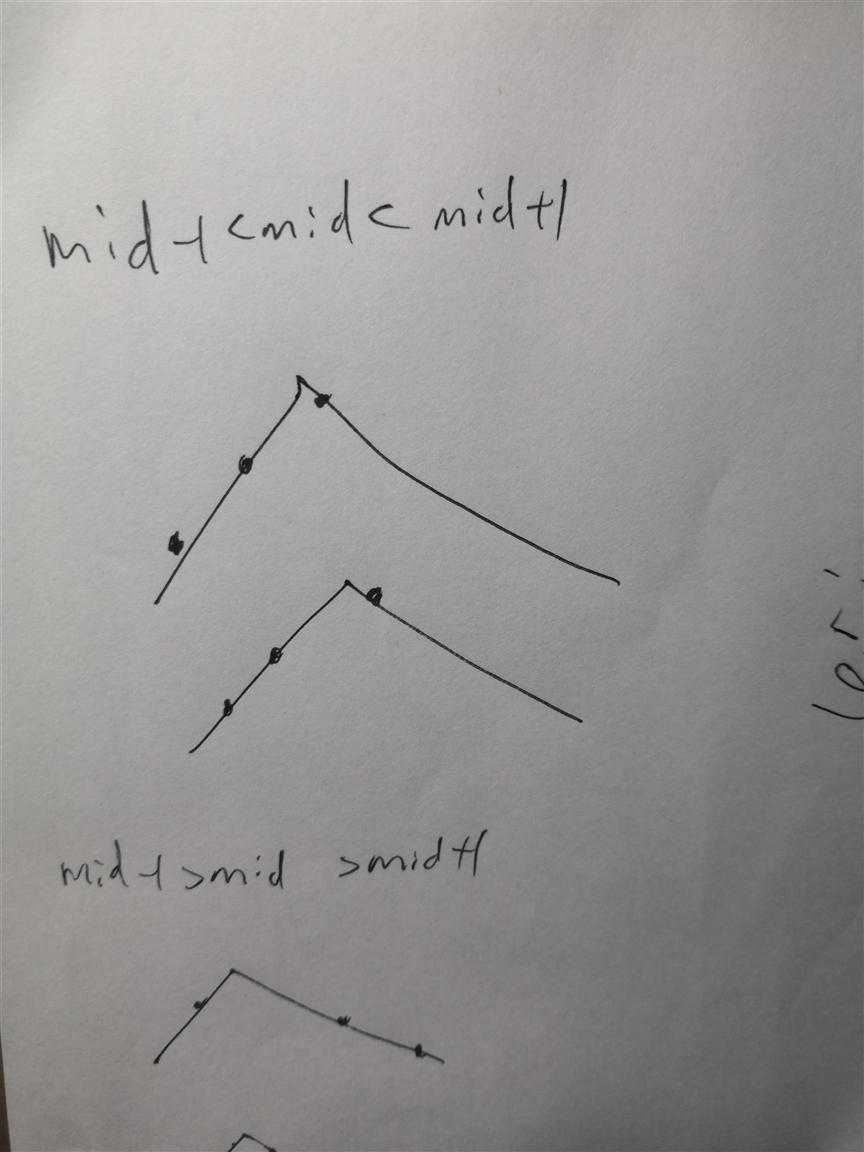 mid-1<mid< mid+1
mid-1>mid >mid+1